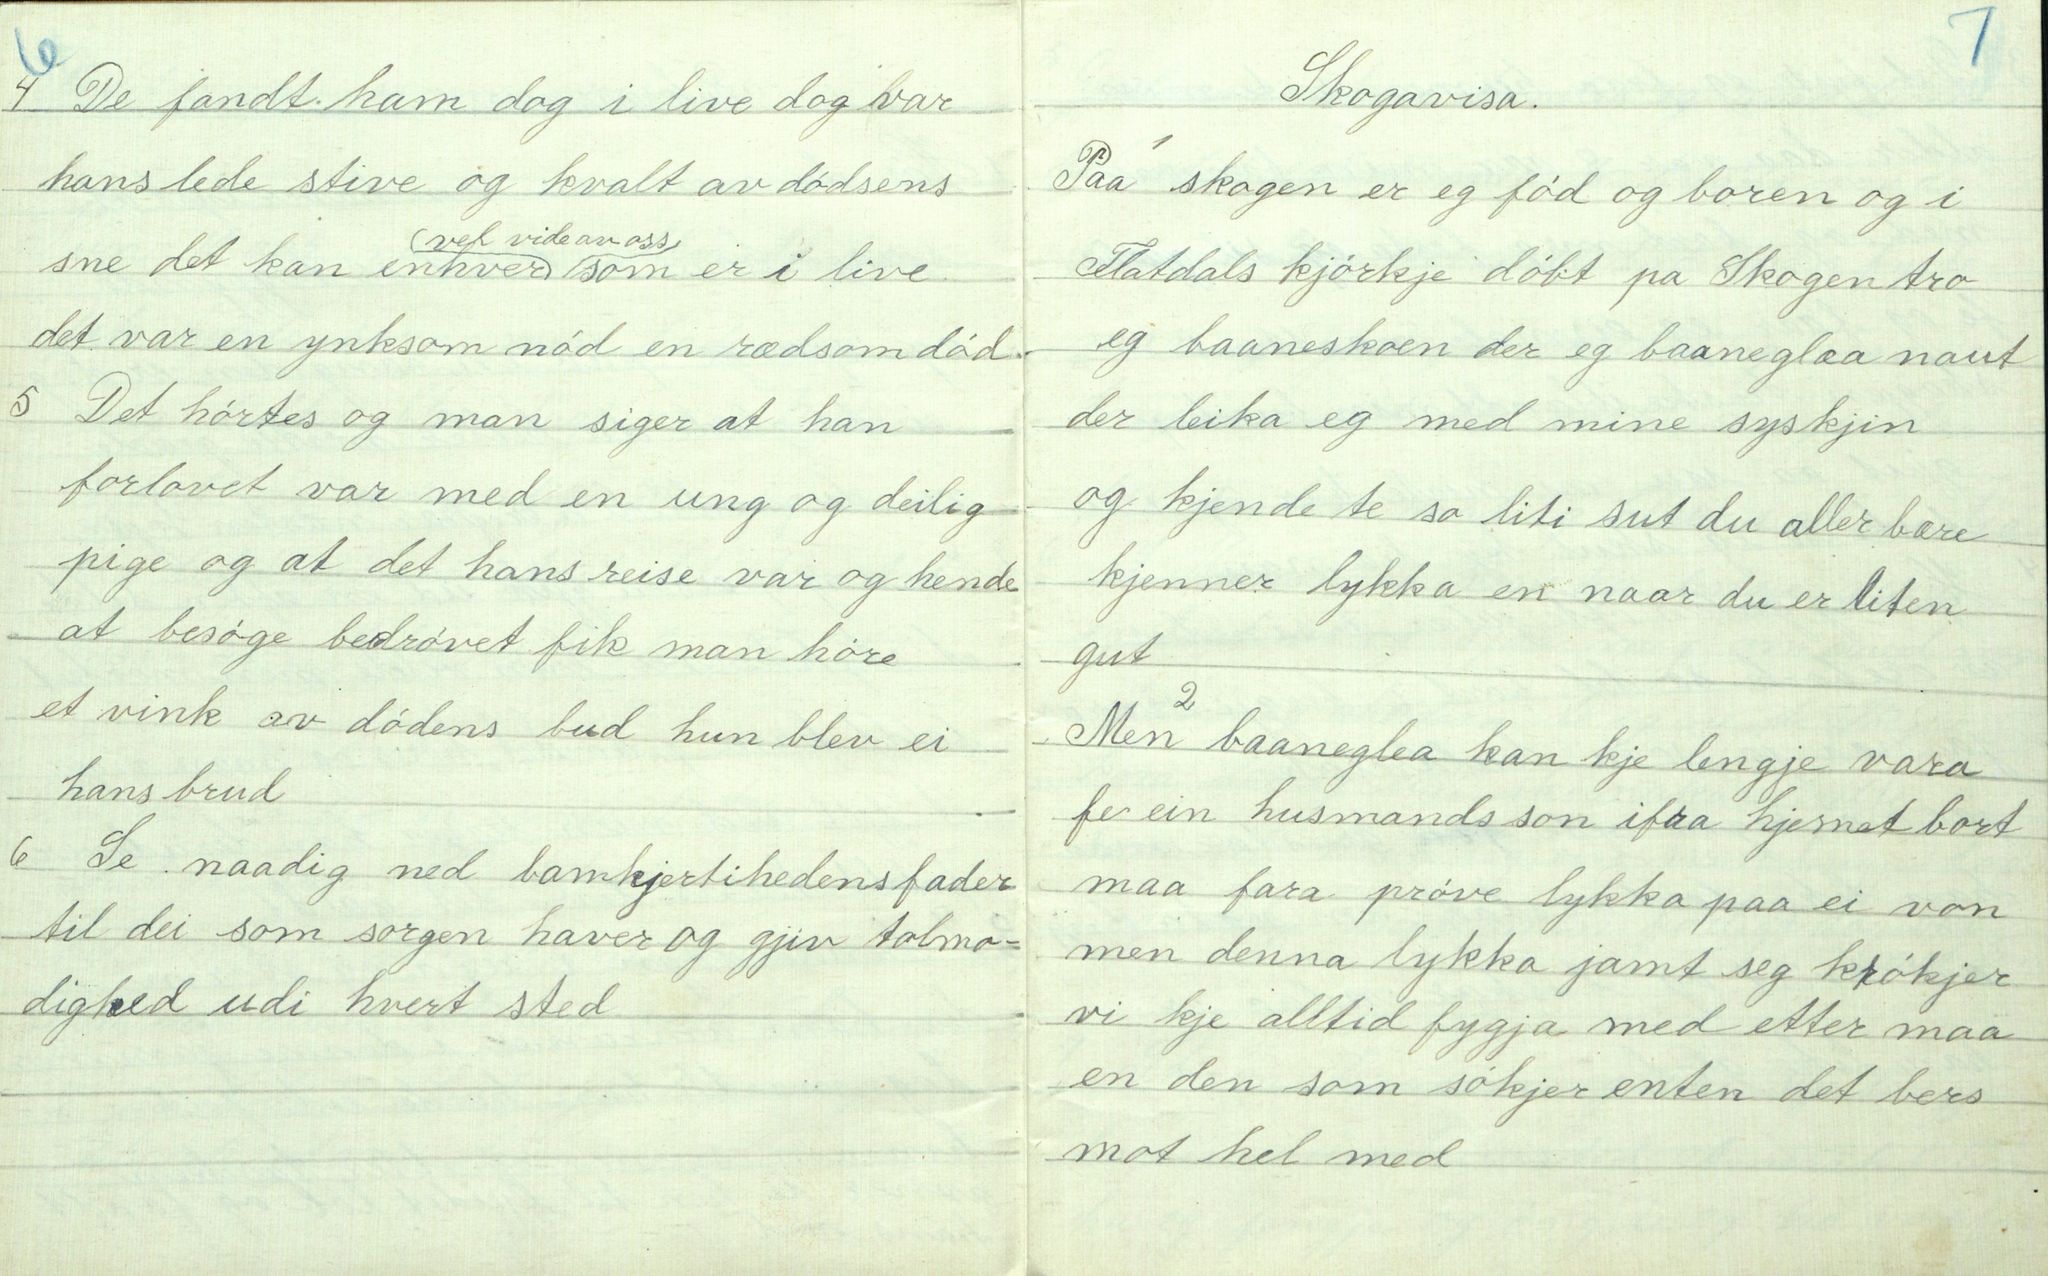 6
4 De fandt ham dog i live dog var
hans lede stive og kvalt av dódsens
(vel vide av oss)
sne det kan enhver som er i live
det var en ynksom nód en rædsom dód.
5 Det hórtes og man siger at han
forlovet var med en ung og deilig
pige og at det hans reise var og hende
at besóge bedróvet fik man hóre
et vink av dódens bud hun blev ei
hans brud
6 Se naadig ned bamhjertihedens fader
til dei som sorgen haver og gjiv tolmo-
dighed udi hvert sted
7
Skogavisa.
1
Paa skogen er eg fód og boren og i
Flatdals kjórkje dóbt pa Skogen tro
eg baaneskoen der eg baaneglæa naut
der leika eg med mine syskjin
og kjende te so liti sut du aller bære
kjenner lykka en naar du er liten
gut
2
Men baaneglea kan kje lengje vara
fe ein husmands son ifra hjemet bort
maa fara próve lykka paa ei von
men denna lykka jamt seg krókjer
vi kje alltid fygja med etter maa
en den som sókjer enten det bers
mot hel med